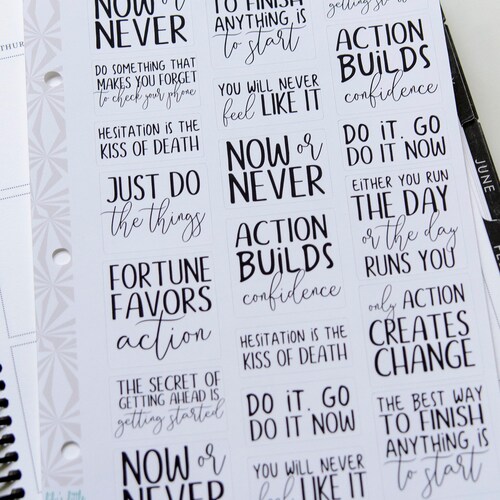 THUR
NOW or
NEVER
DO SOMETHING THAT
MAKES YOU FORGET
to check your phone
HESITATION IS THE
KISS OF DEATH
JUST DO
the things
FORTUNE
FAVORS
action
THE SECRET OF
GETTING AHEAD IS
getting started
NOW or
NEVER
TO FINISH
ANYTHING IS
to start
YOU WILL NEVER
feel LIKE IT
NOW or
NEVER
ACTION
BUiLDS
confidence
HESITATION IS THE
KISS OF DEATH
DO iT. GO
DO IT NOW
YOU WILL NEVER
feel LIKE IT
getting started
ACTION
BUiLDS
confidence
DO iT. GO
DO IT NOW
EiTHER YOU RUN
THE DAY
or the day
RUNS YOU
only ACTION
CREATES
CHANGE
THE BEST WAY
TO FINISH
ANYTHING IS
to start
JUNE